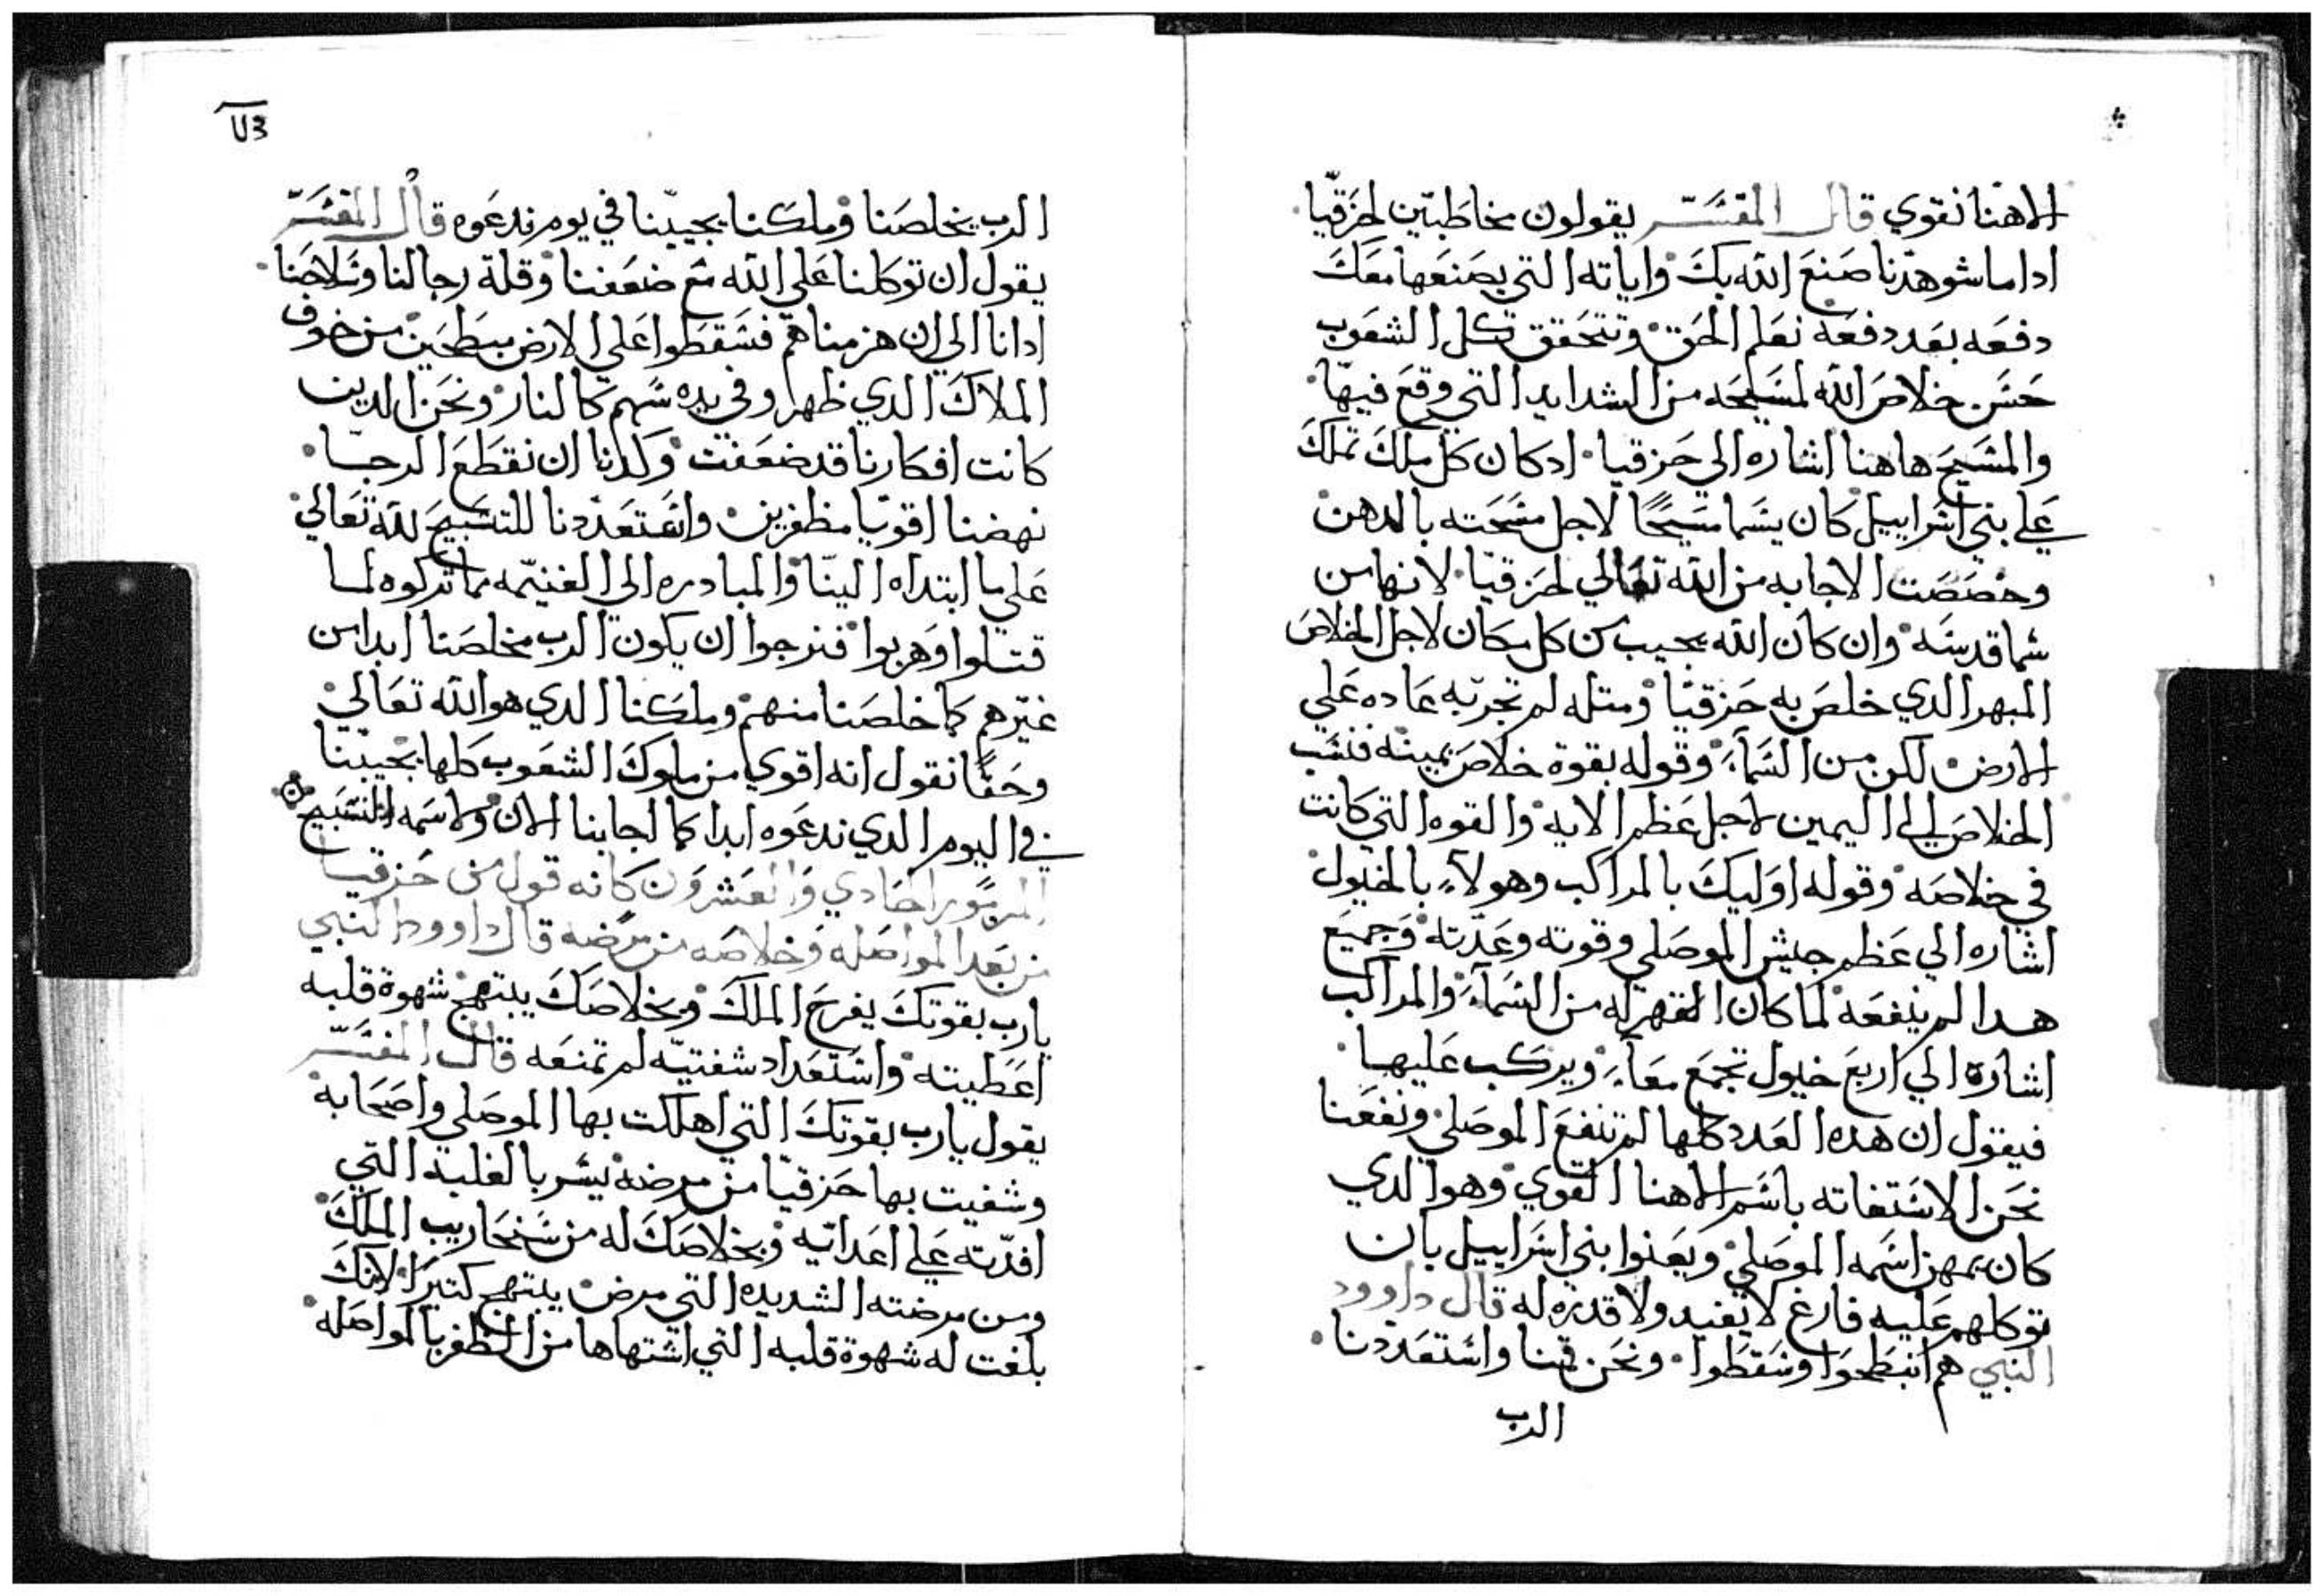 الاهنا نقوي قال المفسر يقولون مخاطبين لحزقيا
اداما شوهدنا صنع الله بك واياته التي يصنعها معك
دفعه بعد دفعه نعلم الحق وتتحقق كل الشعوب
حسن خلاص الله لمسيحه من الشدايد التي وقع فيها
والمسيح هاهنا اشاره الي حزقيا ادكان كل ملك تملك
علي بني اسراييل كان يسما مسيحا لاجل مسحته بالدهن
وخصصت الاجابه من الله تعالي لحزقيا لانها من
سما قدسه وان كان الله يجيب من كل مكان لاجل الخلاص
المبهر الدي خلص به حزقيا ومتله لم تجر به عاده علي
الارض لكن من السمآء وقوله بقوة خلاص يمينه فنسب
الخلاص الي اليمين لاجل عظم الايه والقوه التي كانت
في خلاصه وقوله اوليك بالمراكب وهولآء بالخيول
اشاره الي عظم جيش الموصلي وقوته وعدته وجميع
هدا لم ينفعه لما كان القهر له من السمآء والمراكب
اشارة الي اربع خيول تجمع معآء ويركب عليها
فيقول ان هده العدد كلها لم تنفع الموصلي ونفعنا
نحن الاستغاته باسم الاهنا القوي وهو الدي
كان يمهن اسمه الموصلي ويعنوا بني اسراييل بان
توكلهم عليه فارغ لا يفيد ولا قدره له قال داوود
النبي هم انبطحوا وسقطوا ونحن قمنا واستعددنا
الرب
٧٣
الرب يخلصنا وملكنا يجيبنا في يوم ندعوه قال المفسر
يقول ان توكلنا علي الله مع ضعفنا وقلة رجالنا وسلاحنا
ادانا الي ان هزمناهم فسقطوا علي الارض مبطحين من خوف
الملاك الدي ظهر وفي يده سهم كالنار ونحن الدين
كانت افكارنا قد ضعفت وكدنا ان نقطع الرجا
نهضنا اقويا مظفرين واستعددنا للتسبيح لله تعالي
علي ما ابتداه الينا والمبادره الي الغنيمه مما تركوه لما
قتلوا وهربوا فنرجوا ان يكون الرب مخلصنا ابدا من
غيرهم كما خلصنا منهم وملكنا الدي هو الله تعالي
وحقا نقول انه اقوي من ملوك الشعوب كلها يجيبنا
في اليوم الدي ندعوه ابدا كما اجابنا الان ولاسمه التسبيح
المزمور الحادي والعشرون كانه قول من حزقيا
من بعد المواصله وخلاصه من مرضه قال داوود النبي
يارب بقوتك يفرح الملك وبخلاصك يبتهج شهوة قلبه
اعطيته واستعداد شفتيه لم تمنعه قال المفسر
يقول يارب بقوتك التي اهلكت بها الموصلي واصحابه
وشفيت بها حزقيا من مرضه يسر بالغلبه التي
افدته علي اعدائيه وبخلاصك له من سنحاريب الملك
ومن مرضته الشديده التي مرض يبتهج كتيرا لانك
بلغت له شهوة قلبه التي اشتهاها من الظفر بالمواصله